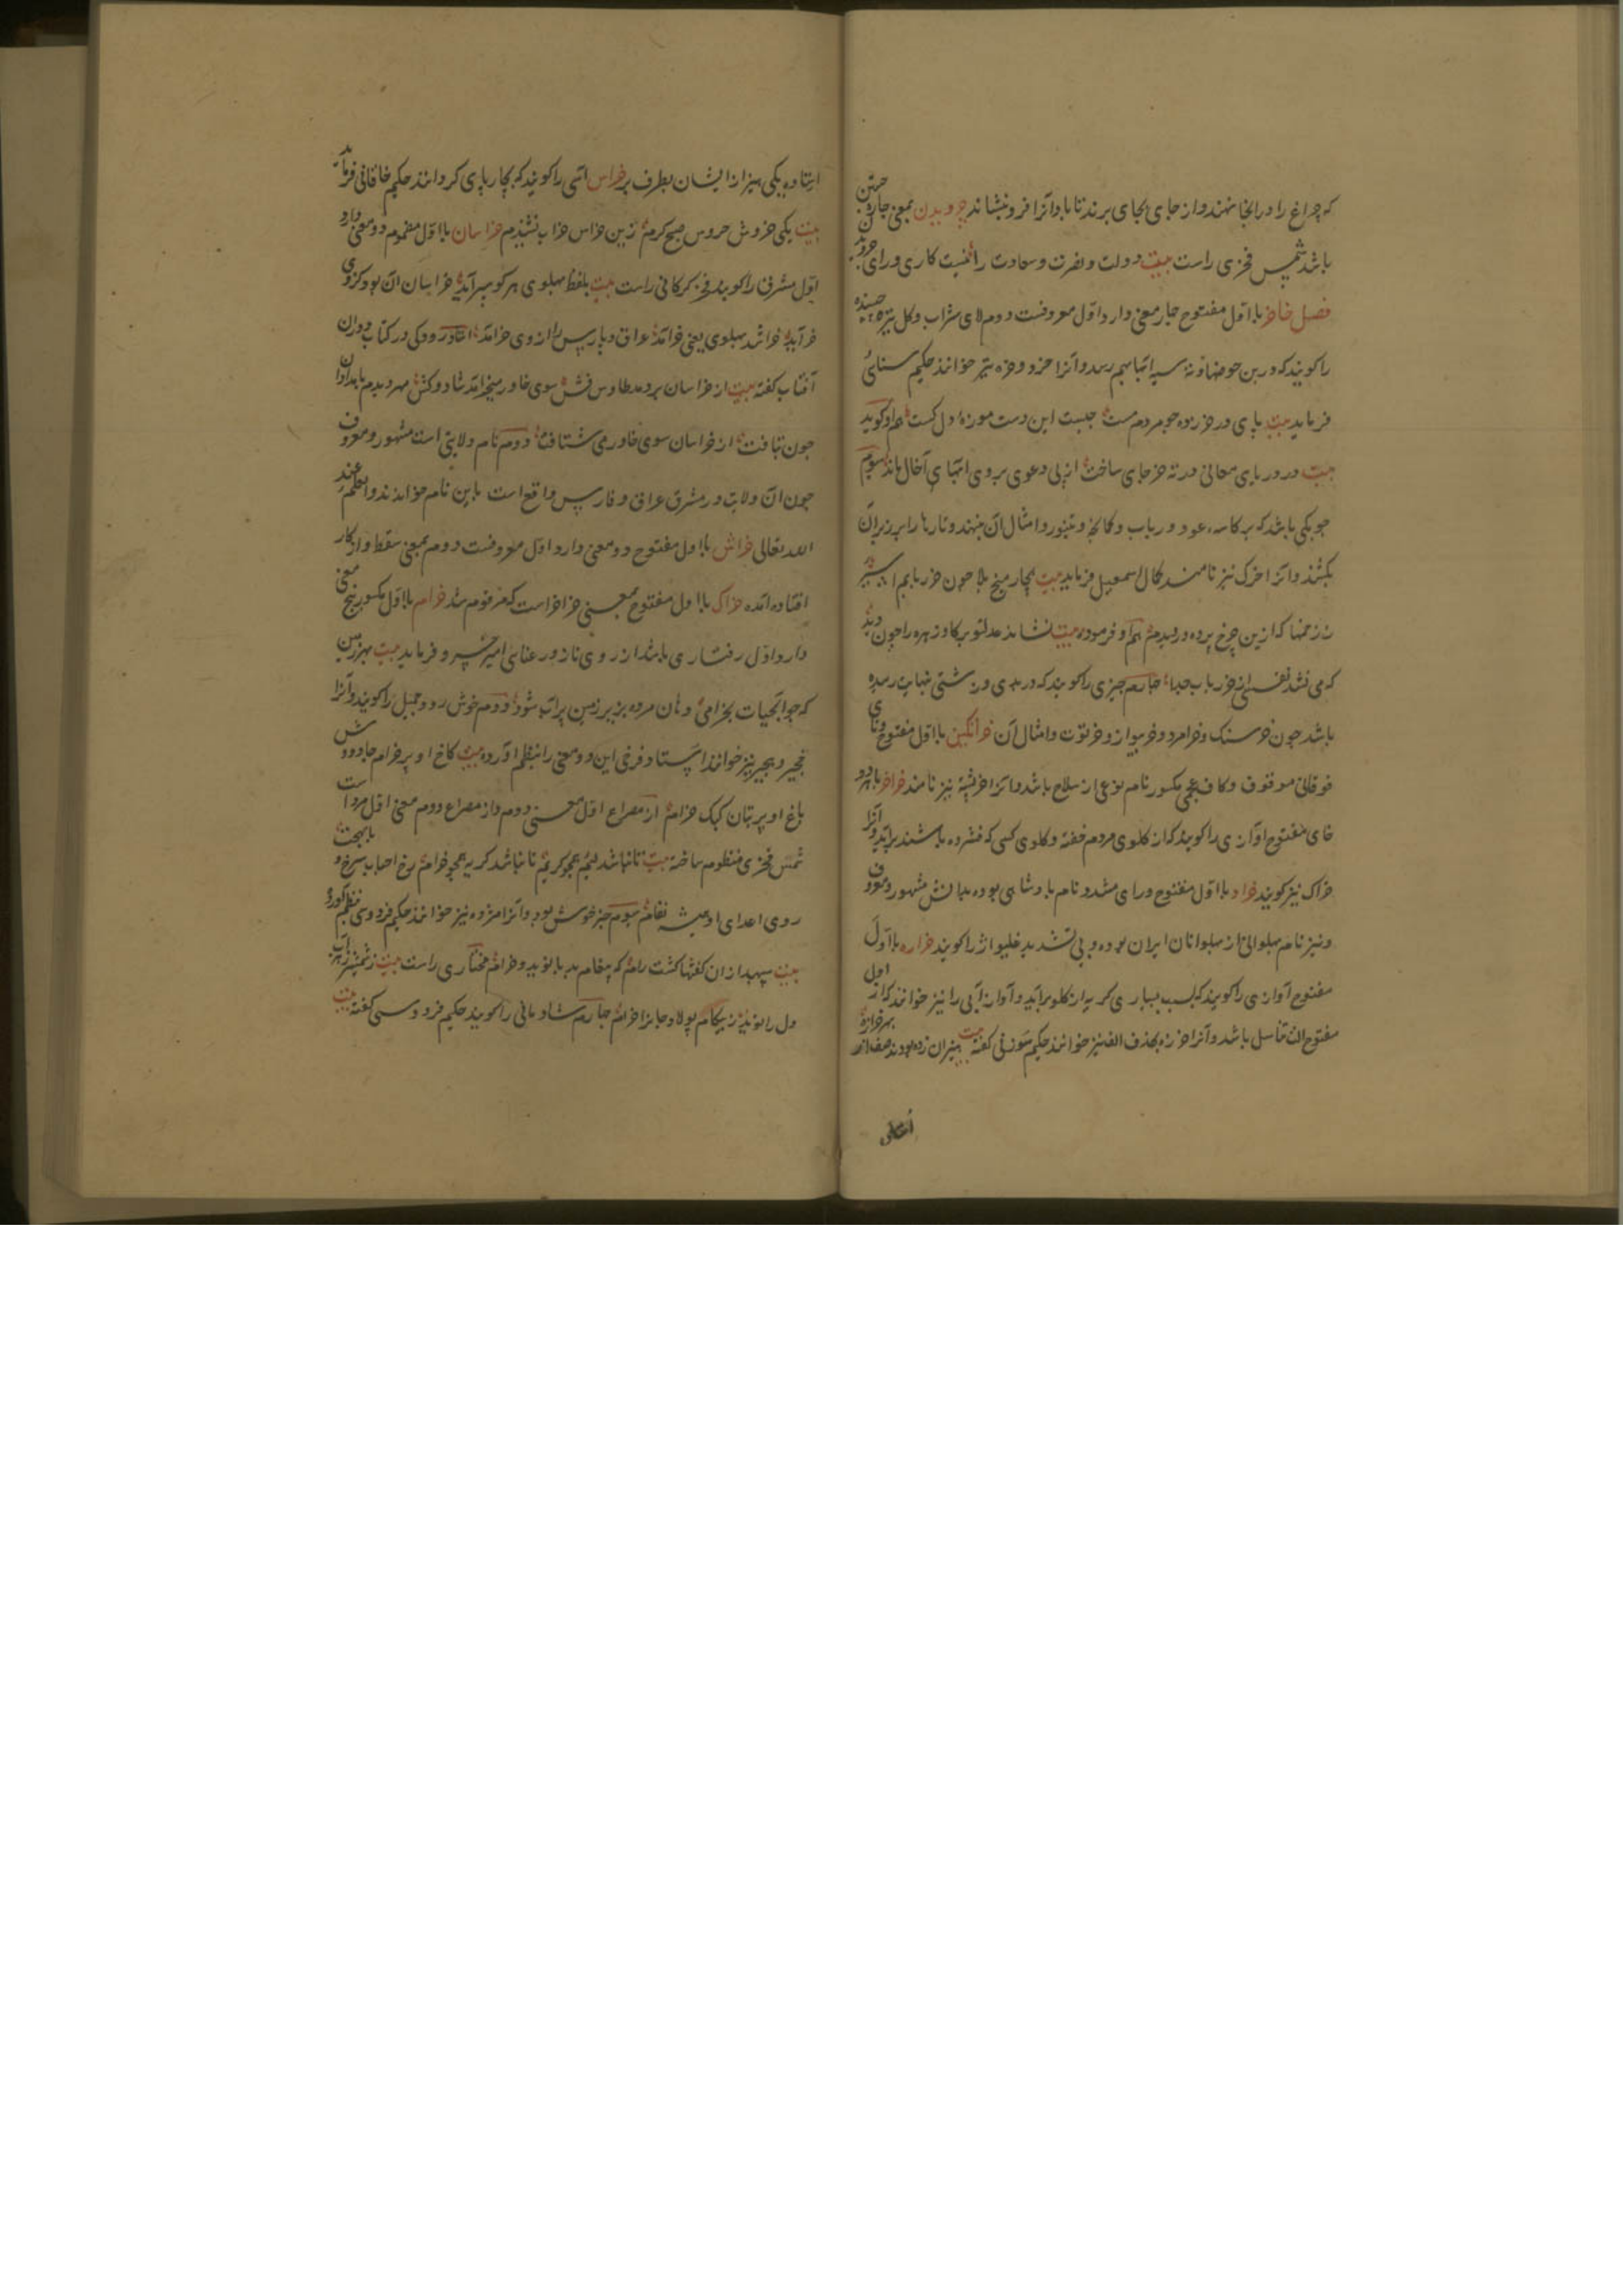 که چراغ را در آنجا نهند و از جای بجای برند تا باد آنرا فرو ننشاند چرویدن بمعنی چاره جستن
باشد شمس فخری راست بیت دولت و نصرت و سعادت را نیست کاری ورای
فصل خا خر با اول مفتوح چهار معنی دارد اول معروفست دوم لای شراب و کل تیره چسبنده
را کویند که در بن حوضها و ته سیه آبها بهم رسد و آنرا خرد و خره نیز خوانند حکیم سنائی
فرماید بیت پای در خر زده چو مردم مست چیست این دست موزه دل کست هم او کوید
بیت در دریای معانی در ته خر جای ساخت از پی دعوی بروی آبها ی آخال ماند سوم
چوبکی باشد که بر کاسه عود و رباب و کمانچه و تنبور و امثال آن بنهند و تارها را بر زبر آن
بکشند و آنرا خرک نیز نامند کمال اسمعیل فرماید بیت بچار میخ بلا چون خر ربابم اسیر
ز زخمها که ازین چرخ پرده در دیدم هم او فرموده بیت نشاند عدل تو بر کاو زهره را چون دید
که می نشد نفسی از خر رباب جدا چهارم چیزی را کویند که در بدی و زشتی نهایت رسیده
باشد چون خرسنک و خرامرود و خرپواز و خرتوت و امثال آن خراتکین با اول مفتوح و تای
فوقانی موقوف و کاف عجمی مکسور نام نوعی از سلاح باشد و آنرا خرپشته نیز نامند خراخر با هر دو
خای مفتوح آوازی را کویند که از کلوی مردم خفته و کلوی کسی که فشرده باشند برآید و آنرا
خراک نیز کویند خراد با اول مفتوح و رای مشدد نام پادشاهی بوده بدانش مشهور و معروف
و نیز نام پهلوانی از پهلوانان ایران بوده و بی تشدید غلیواژ را کویند خراره با اول
مفتوح آوازی را کویند که بسبب بسیاری کریه از کلو برآید و آواز آبی را نیز خوانند که از
مفتوح الف تناسل باشد و آنرا خرزه بحذف الف نیز خوانند حکیم سوزنی کفته بیت
ایستاده یکی بیزار از ایشان بطرف بر خراس آسی را کویند که بچارپای کردانند حکیم خاقانی فرماید
بیت یکی خروش خروس صبح کرم زین خراس خراب نشنیدم خراسان با اول مضموم دو معنی دارد
اول مشرق را کویند فخر کرکانی راست بیت بلفظ پهلوی هر کو سرآید خراسان آن بود کزوی
خرآید خراشد پهلوی یعنی خرآمد عراق و پارس را از وی خرآمد استاد رودکی در کتاب دوران
آفتاب کفته بیت از خراسان بردمد طاوس فش سوی خاور میخرامد شاد و کش مهر دیدم بامدادان
چون تبافت از خراسان سوی خاور می شتافت دوم نام ولایتی است مشهور و معروف
چون آن ولایت در مشرق عراق و فارس واقع است باین نام خواندند و العلم عند
الله تعالی خراش با اول مفتوح دو معنی دارد اول معروفست دوم بمعنی سقط و از کار
افتاده آمده خراک با اول مفتوح بمعنی خراخر است که مرقوم شد خرام با اول مکسور پنج معنی
دارد اول رفتاری باشد از روی ناز و رعنایی امیرخسرو فرماید بیت بهر زمین
که چو آبحیات بخرامی دهان مرده بزیر زمین پر آب شود دوم خوش رو و جمیل را کویند و آنرا
فجیر و بجیر نیز خوانند استاد فرخی این دو معنی را بنظم آورده بیت کاخ او پر خرام جادووش
باغ او پر بتان کبک خرام از مصراع اول معنی دوم و از مصراع دوم معنی اول مرادست
شمس فخری منظوم ساخته بیت تا نباشد لئیم همچو کریم تا نباشد کریه همچو خرام رخ احباب سرخ و با بهجت
روی اعدای او همیشه نفام سوم خبر خوش بود و آنرا مژده نیز خوانند حکیم فردوسی بنظم آورده
بیت سپهبد از آن کفتها کشت رام که پیغام بد با نوید و خرام مختاری راست بیت ز شمشیر زهر آب
دل را نوید ز پیکام پولاد جانرا خرام چهارم شادمانی را کویند حکیم فردوسی کفته بیت